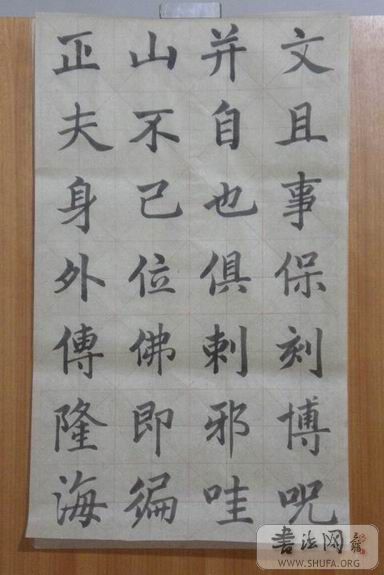 文且事保刻博呪
并自也俱刺邪哇
山不己位佛即徧
正夫身外傳隆海
書法网
WWW.SHUFA.ORG